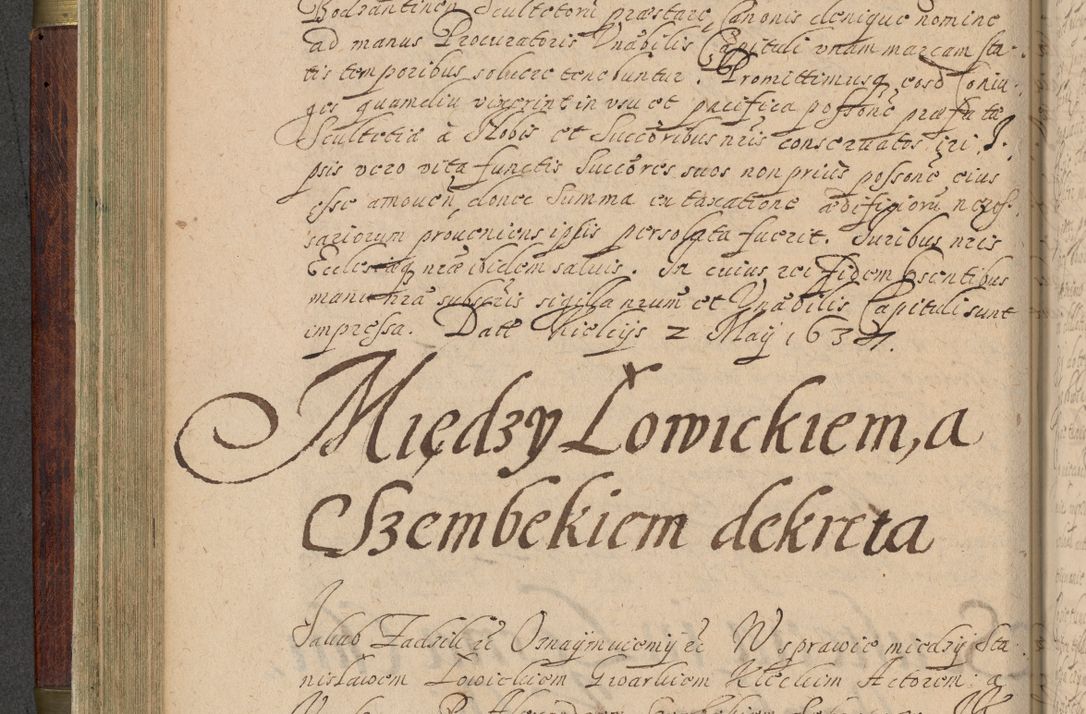 Bodzantinen Scultetorū præstare, Canonis denique nomine
ad manus Procuratoris Vnābilis Capituli vnam marcam sta-
tis temporibus soluere tenebuntur. Promittimusq eosd Coniu-
ges quamdiu vixerint in vsu et pacifica possone præfatæ
Scultetiæ à Nobis et Succoribus nris conseruatos iri. J-
psis vero vita functis Succores suos non prius possone eius
esse amouen̄ donec Summa ex taxatione ædificiorū neces-
sariorum proueniens ipsis persoluta fuerit. Juribus nris
Ecclesiæq nræ ibidem saluis. In cuius rei fidem psentibus
manu nrā subscris sigilla nrum et Vnābilis Capituli sunt
impressa. Datē Kielcijs 2 Maij 1637.
Między Łowickiem, a
Szembekiem dekreta
Jakub Zadzik ec Oznaymuiemy ec W sprawie między Sta-
nisławem Łowickiem Gwarkiem Kieleckim Actorem: a